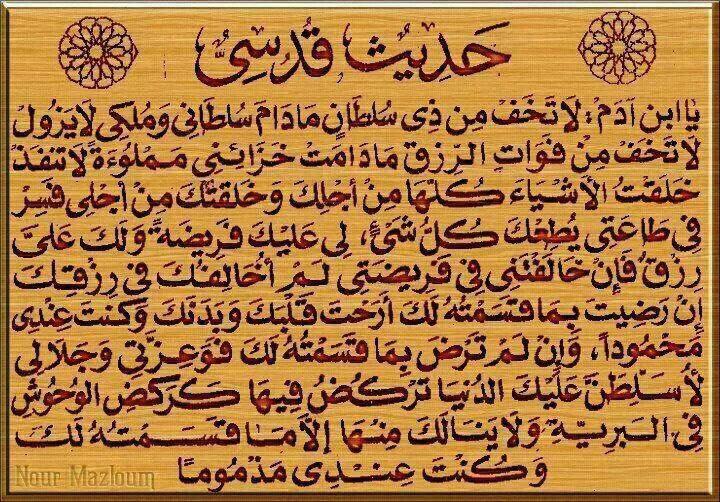 حَدِيث قُدسِىُّ
يَا ابن آدَمْ: لَا تَخَفْ مِن ذِى سُلطَانٍ مَا دَامَ سُلطَانِى وَمُلكِى لَا يَزُول
لَا تَخَفْ مِنْ فَوَاتِ الرِّزق مَادَامَتْ خَزَائِنِى مَمْلُوءَةً لَا تَنفَدْ
خَلَقْتُ الأَشْيَاءَ كُلَّهَا مِنْ أجْلِكَ وَخَلَقتُكَ مِنْ أجْلِى فَسِرْ
فِى طَاعَتِى يُطِعْكَ كُلُّ شَىْءٍ، لِى عَلَيْكَ فَرِيضَةً وَلَكَ عَلَىَّ
رِزْقٌ فَإِنْ خَالَفْتَنِى فِى فَرِيضَتِى لَمْ أُخَالِفْكَ فِى رِزْقِكَ
إنْ رَضِيتَ بِمَا قَسَمْتُهُ لَكَ أرَحْتَ قَلْبَكَ وَبَدَنَكَ وَكُنتَ عِنْدِى
مَحْمُوداً، وَإنْ لَمْ تَرْضَ بِمَا قَسَمْتُهُ لَكَ فَوَعِزَّتِى وَجَلَالِى
لأُسَلِّطَنَّ عَلَيْكَ الدُنيَا تَرْكُضُ فِيهَا كَرَكضِ الوُحُوشِ
فِى البَرِيَّةِ وَلَا يَنَالُكَ مِنْهَا إلَّا مَا قَسَمْتُهُ لَكَ
وَكُنْتَ عِنْدِى مَذْمُومًا
Nour Mazloum